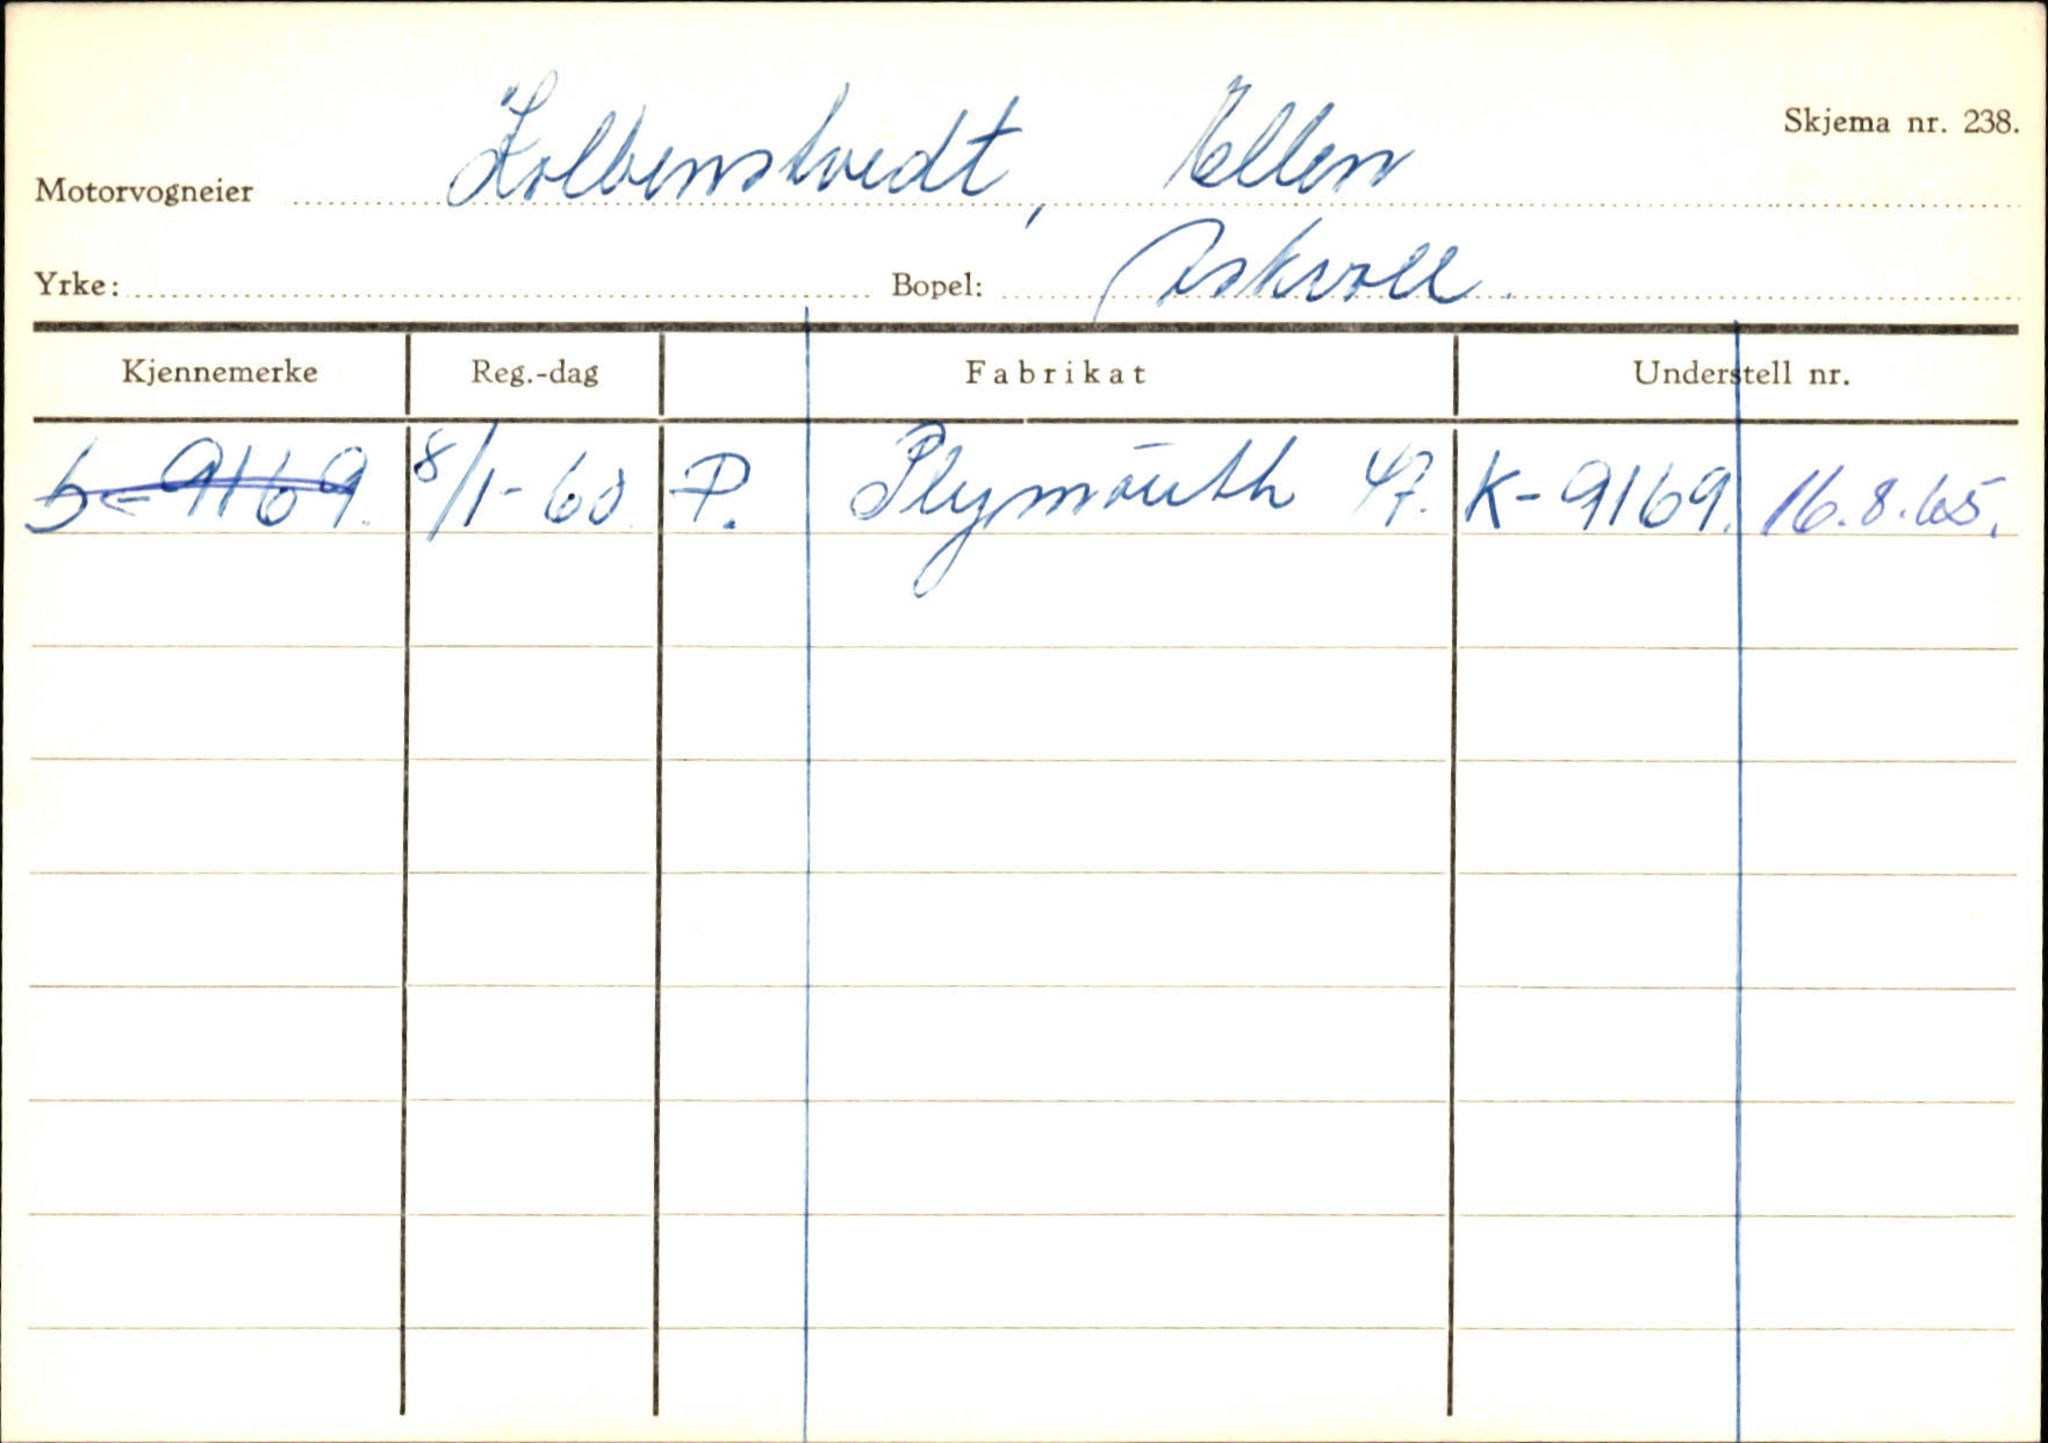 Skjema nr. 238.
Motorvogneier Kolbenstvedt, Ellen
Yrke: Bopel: Askvoll.
Kjennemerke Reg.-dag Fabrikat Understell nr.
S-9169. 8/1-60. P. Plymouth 47. K-9169. 16.8.65.